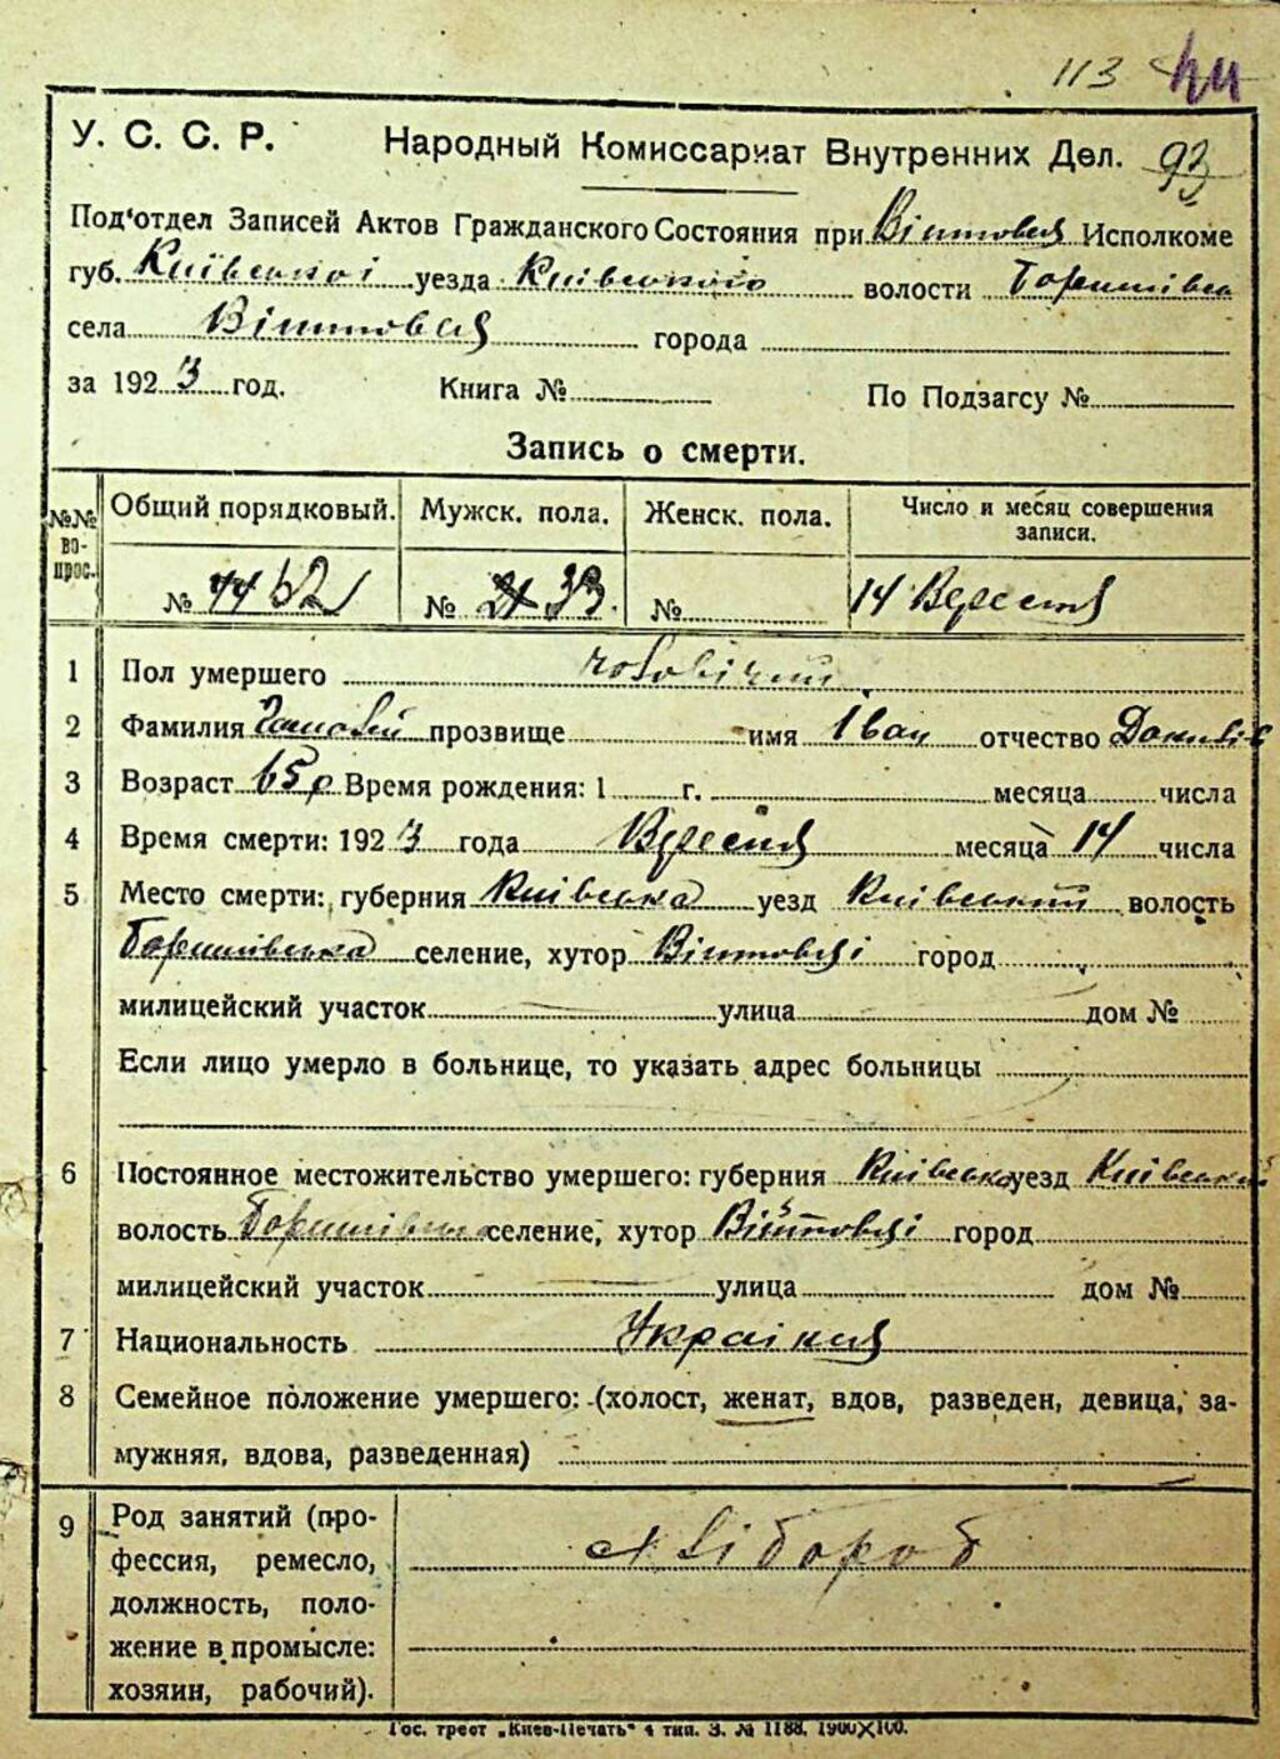 113
93
У. С. С. Р. Народный Комиссариат Внутренних Дел.
Под'отдел Записей Актов Гражданского Состояния при Исполкоме
губ. Київської уезда Київського волости
села города
за 1923 год. Книга № По Подзагсу №
Запись о смерти.
№№ вопрос. Общий порядковый. Мужск. пола. Женск. пола. Число и месяц совершения записи.
№ 62 № 33 № 14 Вересня
1 Пол умершего чоловічий
2 Фамилия прозвище имя Іван отчество
3 Возраст 65 р Время рождения: 1 г. месяца числа
4 Время смерти: 1923 года Вересня месяца 14 числа
5 Место смерти: губерния Київська уезд Київський волость
селение, хутор город
милицейский участок улица дом №
Если лицо умерло в больнице, то указать адрес больницы
6 Постоянное местожительство умершего: губерния Київська уезд Київський
волость селение, хутор город
милицейский участок улица дом №
7 Национальность Украінця
8 Семейное положение умершего: (холост, женат, вдов, разведен, девица, за-
мужняя, вдова, разведенная)
9 Род занятий (про-
фессия, ремесло,
должность, поло-
жение в промысле:
хозяин, рабочий).
хлібороб
Гос. трест „Киев-Печать" 4 тип. З. № 1188. 1900X100.